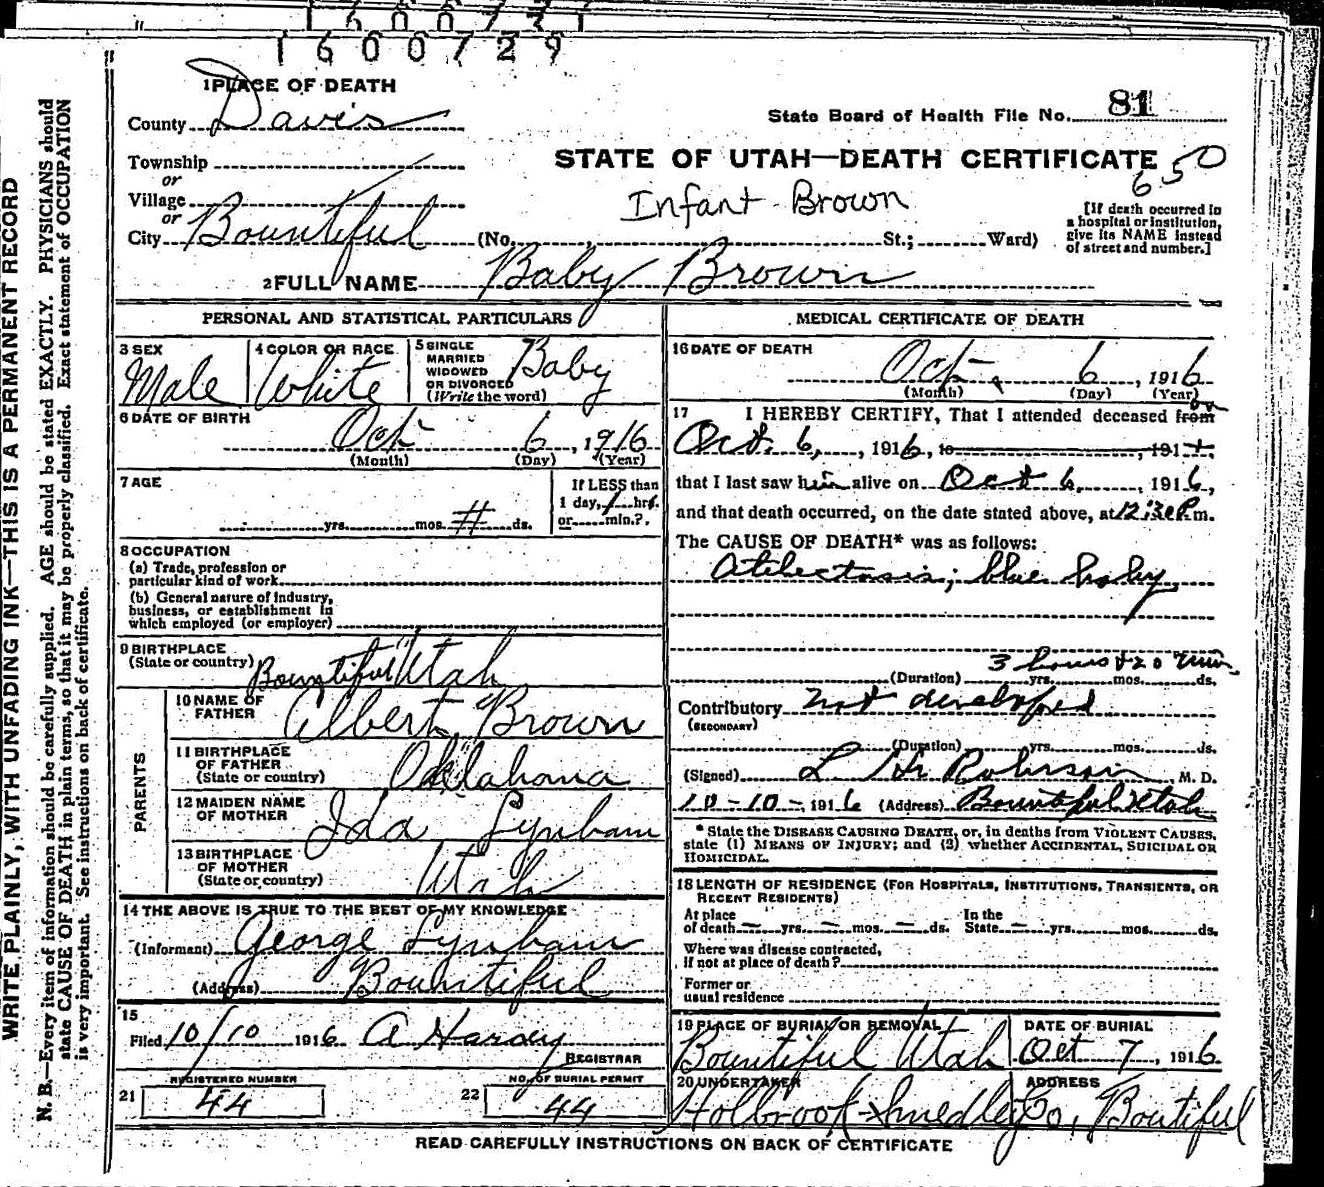 1600729
1 PLACE OF DEATH
County Davis
State Board of Health File No. 81
Township
or
STATE OF UTAH—DEATH CERTIFICATE
650
Village
or
Infant Brown
City Bountiful (No. St.; Ward)
[If death occurred in
a hospital or institution,
give its NAME instead
of street and number.]
2 FULL NAME Baby Brown
PERSONAL AND STATISTICAL PARTICULARS
3 SEX
Male
4 COLOR OR RACE
White
5 SINGLE
MARRIED
WIDOWED
OR DIVORCED
(Write the word)
Baby
6 DATE OF BIRTH
Oct 6, 1916
(Month) (Day) (Year)
7 AGE
yrs. mos. ds.
If LESS than
1 day, hrs.
or min.?
8 OCCUPATION
(a) Trade, profession or
particular kind of work
(b) General nature of industry,
business, or establishment in
which employed (or employer)
9 BIRTHPLACE
(State or country) Bountiful Utah
PARENTS
10 NAME OF
FATHER Albert Brown
11 BIRTHPLACE
OF FATHER
(State or country) Oklahama
12 MAIDEN NAME
OF MOTHER Ida Lynham
13 BIRTHPLACE
OF MOTHER
(State or country) Utah
14 THE ABOVE IS TRUE TO THE BEST OF MY KNOWLEDGE
(Informant) George Lynham
(Address) Bountiful
15
Filed 10/10 1916 A Hardy
REGISTRAR
REGISTERED NUMBER
21 44
NO. OF BURIAL PERMIT
22 44
MEDICAL CERTIFICATE OF DEATH
16 DATE OF DEATH
Oct. 6, 1916
(Month) (Day) (Year)
17 I HEREBY CERTIFY, That I attended deceased from on
Oct. 6, 1916, to , 191
that I last saw him alive on Oct 6, 1916,
and that death occurred, on the date stated above, at 12:30 P.m.
The CAUSE OF DEATH* was as follows:
Atelectasis; blue baby
3 hours + 20 min
(Duration) yrs. mos. ds.
Contributory not developed
(SECONDARY)
(Duration) yrs. mos. ds.
(Signed) L. H. Robinson, M. D.
10-10-, 1916 (Address) Bountiful Utah
* State the DISEASE CAUSING DEATH, or, in deaths from VIOLENT CAUSES,
state (1) MEANS OF INJURY; and (2) whether ACCIDENTAL, SUICIDAL OR
HOMICIDAL.
18 LENGTH OF RESIDENCE (FOR HOSPITALS, INSTITUTIONS, TRANSIENTS, OR
RECENT RESIDENTS)
At place
of death — yrs. — mos. — ds.
In the
State — yrs. mos. ds.
Where was disease contracted,
if not at place of death?
Former or
usual residence
19 PLACE OF BURIAL OR REMOVAL
Bountiful Utah
DATE OF BURIAL
Oct 7, 1916
20 UNDERTAKER
Holbrook-Smedley Co,
ADDRESS
Boutiful
READ CAREFULLY INSTRUCTIONS ON BACK OF CERTIFICATE
WRITE PLAINLY, WITH UNFADING INK—THIS IS A PERMANENT RECORD
N. B.—Every item of information should be carefully supplied. AGE should be stated EXACTLY. PHYSICIANS should
state CAUSE OF DEATH in plain terms, so that it may be properly classified. Exact statement of OCCUPATION
is very important. See instructions on back of certificate.